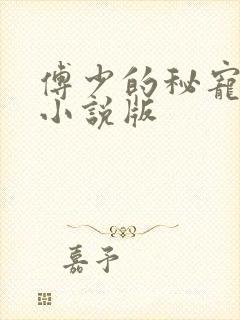 傅少的秘宠
小说版
嘉予